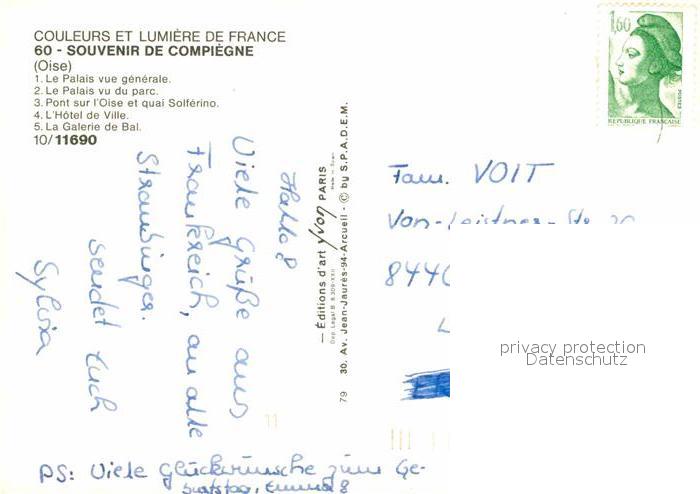 COULEURS ET LUMIÈRE DE FRANCE
60 - SOUVENIR DE COMPIÈGNE
(Oise)
1. Le Palais vue générale.
2. Le Palais vu du parc.
3. Pont sur l'Oise et quai Solférino.
4. L'Hôtel de Ville.
5. La Galerie de Bal.
10/11690
Hallo!
Viele Grüße aus
Frankreich, an alle
Straubinger.
sendet Euch
Sylvia
PS: Viele Glückwünsche zum Ge-
burtstag, Emma!
— Éditions d'art yvon PARIS
Dép. Légal B 8.309-XII
Made in
30. Av. Jean-Jaurès-94-Arcueil - © by S.P.A.D.E.M.
79
11
1,60
POSTES
REPUBLIQUE FRANÇAISE
Fam. VOIT
Von-Leistner-Str.
844
privacy protection
Datenschutz